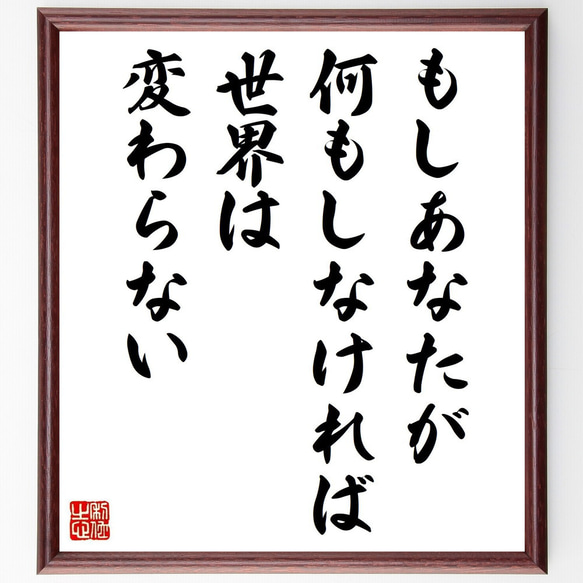 もしあなたが
何もしなければ
世界は
変わらない